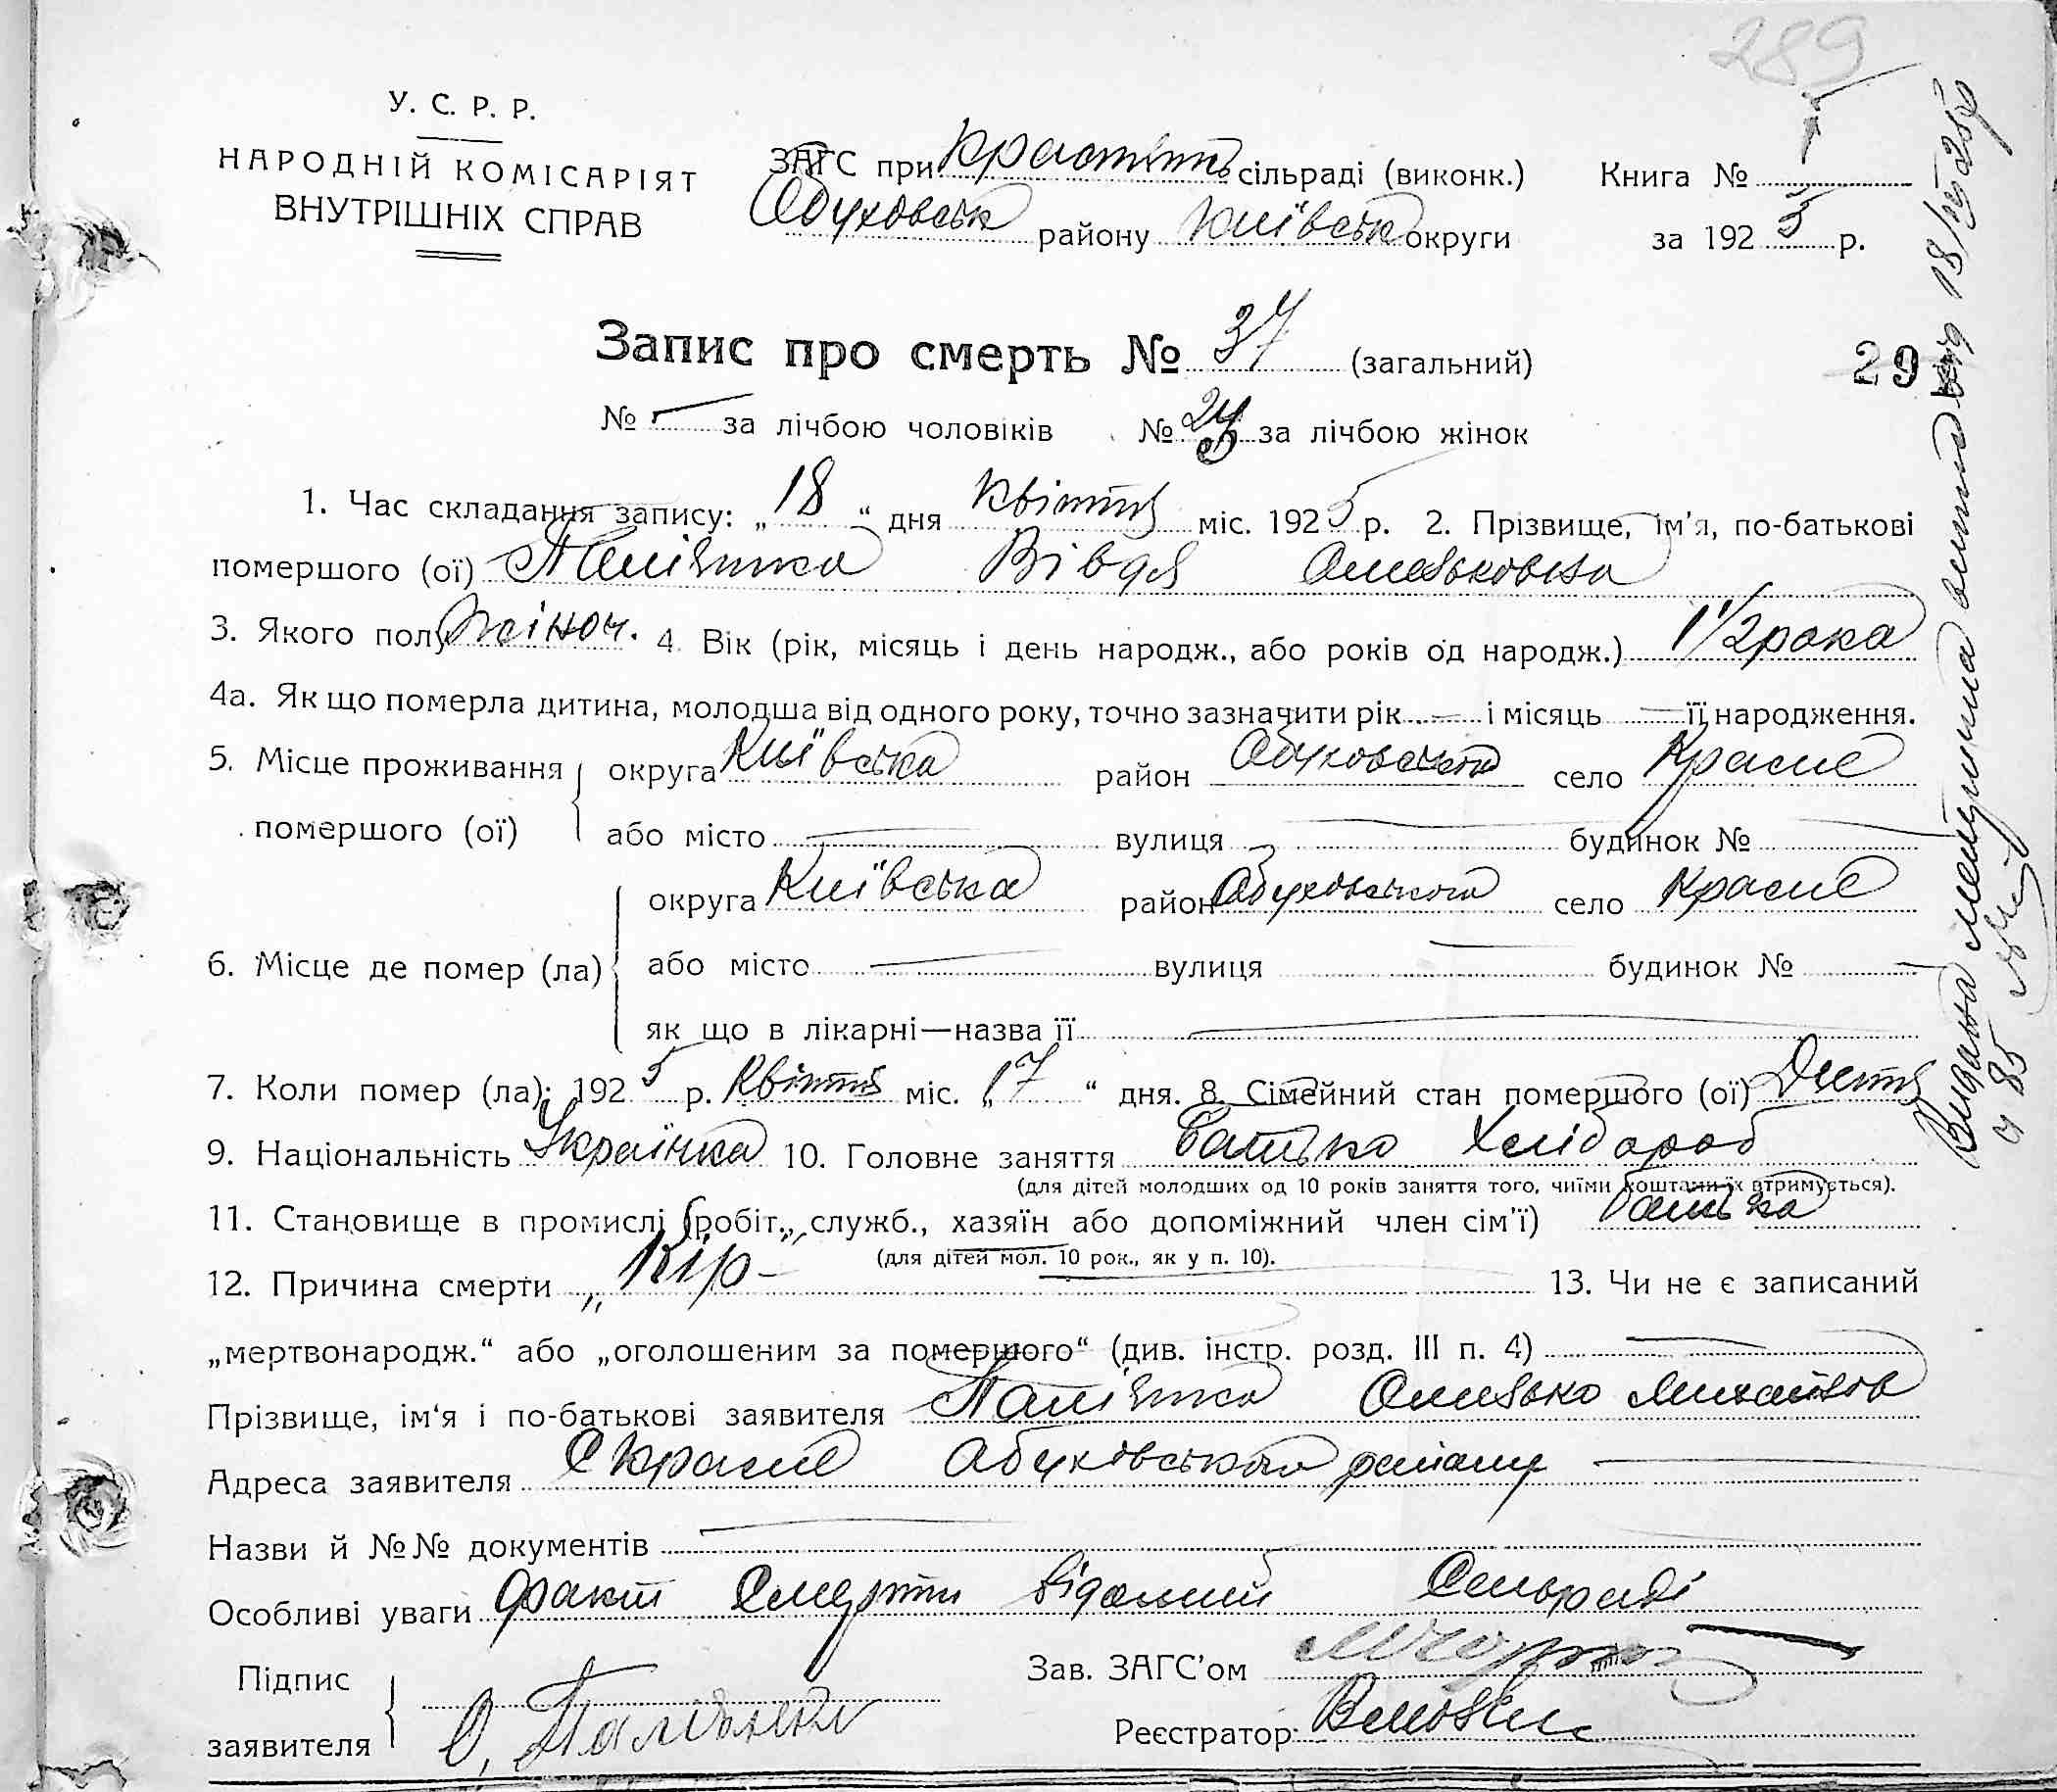 289
У. С. Р. Р.
НАРОДНІЙ КОМІСАРІЯТ
ВНУТРІШНІХ СПРАВ
ЗАГС при сільраді (виконк.)
Обуховськ району Київськ округи
Книга №
за 1925 р.
Запис про смерть № 37 (загальний)
29
№ — за лічбою чоловіків № за лічбою жінок
1. Час складання запису: „18“ дня квітня міс. 1925 р. 2. Прізвище, ім'я, по-батькові
помершого (ої) Палієнко Вівдя Омельковна
3. Якого полу жіноч. 4. Вік (рік, місяць і день народж., або років од народж.) 1 1/2 рока
4а. Як що померла дитина, молодша від одного року, точно зазначити рік — і місяць — її народження.
5. Місце проживання округа Київська район село Красне
помершого (ої) або місто — вулиця — будинок № —
округа Київська район Обуховського село Красне
6. Місце де помер (ла) або місто — вулиця — будинок № —
як що в лікарні—назва її —
7. Коли помер (ла): 1925 р. Квітня міс. „17“ дня. 8. Сімейний стан помершого (ої) Дитя
9. Національність Українка 10. Головне заняття Батько Хлібороб
(для дітей молодших од 10 років заняття того, чиїми коштами їх втримується).
11. Становище в промислі (робіт., служб., хазяїн або допоміжний член сім'ї) батька
(для дітей мол. 10 рок., як у п. 10).
12. Причина смерти „Кір“ — 13. Чи не є записаний
„мертвонародж.“ або „оголошеним за помершого“ (див. інстр. розд. III п. 4) —
Прізвище, ім'я і по-батькові заявителя Палієнко Омелько Михайлов
Адреса заявителя С Красне Обухівського району —
Назви й №№ документів —
Особливі уваги факт Смерти відомий Сельраді
Підпис
заявителя О.
Зав. ЗАГС'ом
Реєстратор:
Видана